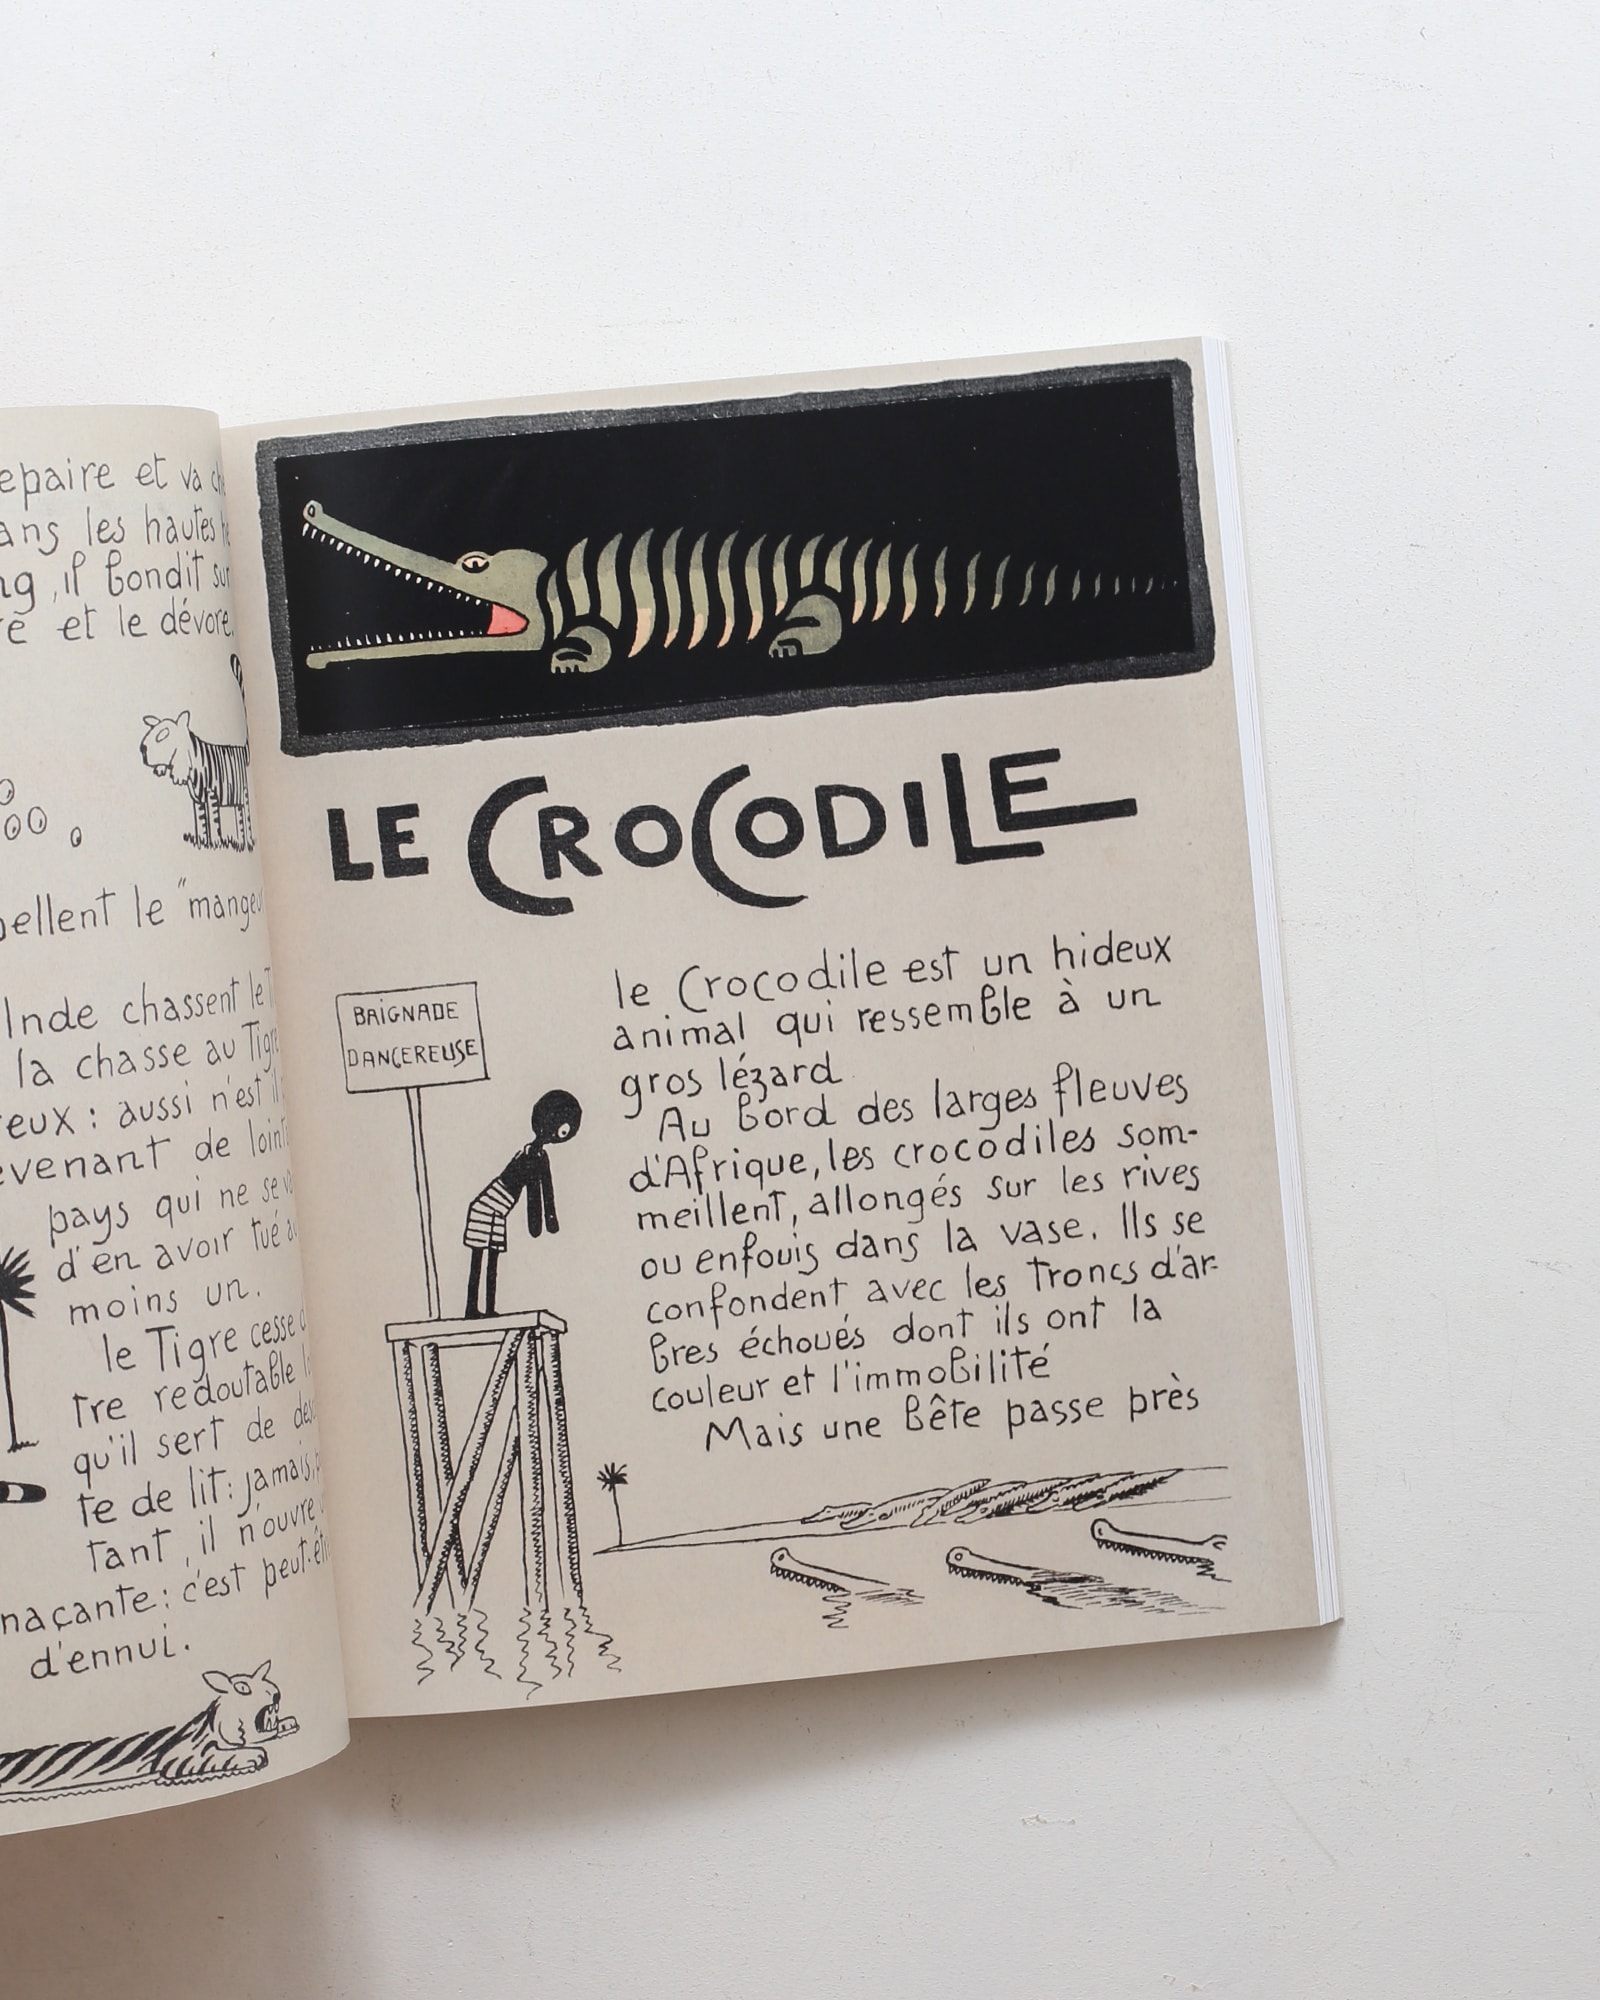 epaire et va
ans les hautes
il bondit sur
et le dévore.
le "mangeur
Inde chassent le
la chasse au Tigre
eux : aussi n'est il
de
pays qui ne se
d'en avoir tué
moins un.
le Tigre cesse
tre redoutable
qu'il sert de
te de lit : jamais,
tant, il n'ouvre
naçante : c'est peut-
d'ennui.
LE CROCODILE
BAIGNADE
DANGEREUSE
le Crocodile est un hideux
animal qui ressemble à un
gros lézard
Au bord des larges fleuves
d'Afrique, les crocodiles som-
meillent, allongés sur les rives
ou enfouis dans la vase. Ils se
confondent avec les troncs d'ar-
bres échoués dont ils ont la
couleur et l'immobilité
Mais une bête passe près